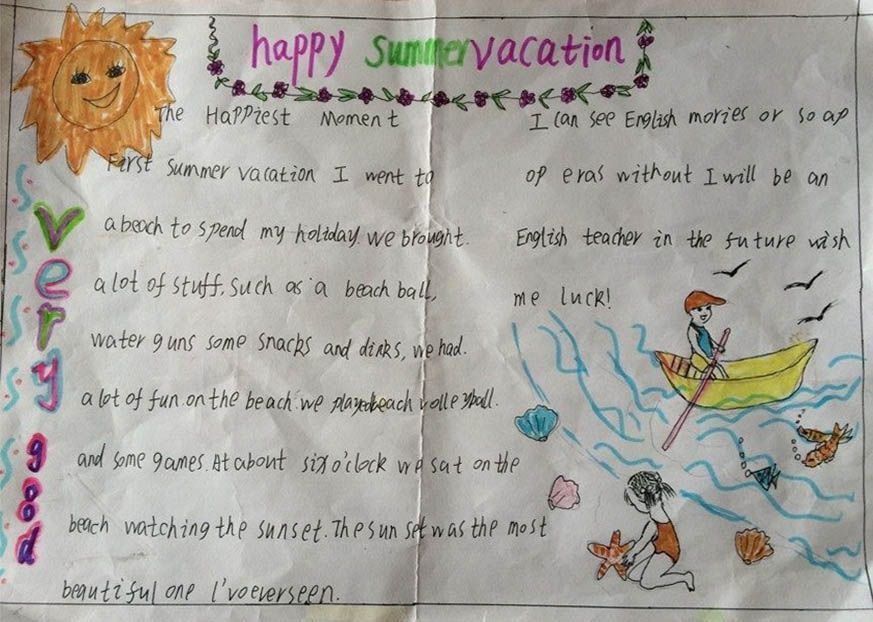 happy summer vacation
The Happiest Moment
First summer vacation I went to
a beach to spend my holiday. we brought.
a lot of stuff. such as a beach ball,
water guns some snacks and dinks, we had.
a lot of fun. on the beach. we played beach volleyball.
and some games. At about six o'clock we sat on the
beach watching the sunset. The sun set was the most
beautiful one I'voeverseen.
I can see English mories or soap
op eras without I will be an
English teacher in the future wish
me luck!
very good